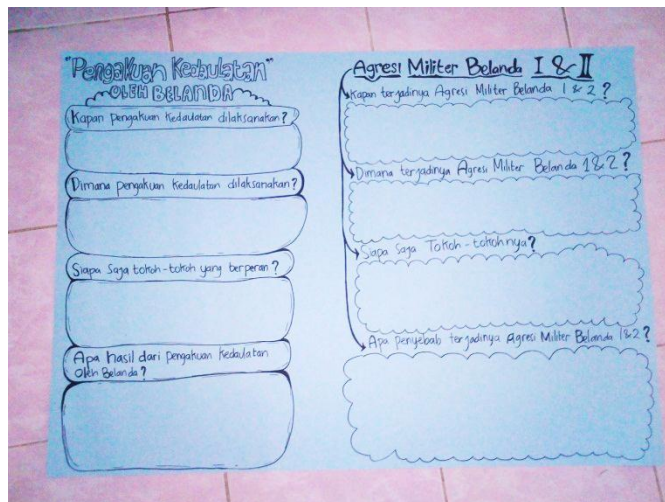 "Pengakuan Kedaulatan"
OLEH BELANDA
Kapan pengakuan kedaulatan dilaksanakan?
Dimana pengakuan kedaulatan dilaksanakan?
Siapa saja tokoh-tokoh yang berperan?
Apa hasil dari pengakuan kedaulatan
Oleh Belanda?
Agresi Militer Belanda I & II
Kapan terjadinya Agresi Militer Belanda 1 & 2?
Dimana terjadinya Agresi Militer Belanda 1&2?
Siapa saja Tokoh-tokohnya?
Apa penyebab terjadinya Agresi Militer Belanda 1&2?